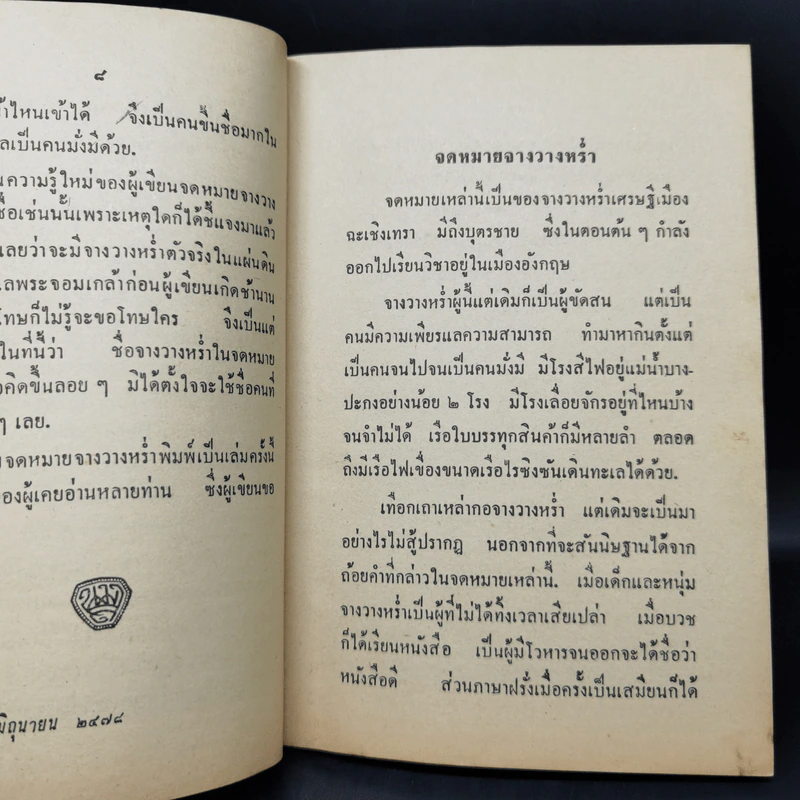 ๘
ไหนเข้าได้ จึงเป็นคนขึ้นชื่อมากใน
เป็นคนมั่งมีด้วย.
ความรู้ใหม่ของผู้เขียนจดหมายจางวาง
ชื่อเช่นนั้นเพราะเหตุใดก็ได้ชี้แจงมาแล้ว
เลยว่าจะมีจางวางหร่ำตัวจริงในแผ่นดิน
พระจอมเกล้าก่อนผู้เขียนเกิดช้านาน
โทษก็ไม่รู้จะขอโทษใคร จึงเป็นแต่
ในที่นี้ว่า ชื่อจางวางหร่ำในจดหมาย
คิดขึ้นลอย ๆ มิได้ตั้งใจจะใช้ชื่อคนที่
ๆ เลย.
จดหมายจางวางหร่ำพิมพ์เป็นเล่มครั้งนี้
ของผู้เคยอ่านหลายท่าน ซึ่งผู้เขียนขอ
มิถุนายน ๒๔๗๘
จดหมายจางวางหร่ำ
จดหมายเหล่านี้เป็นของจางวางหร่ำเศรษฐีเมือง
ฉะเชิงเทรา มีถึงบุตรชาย ซึ่งในตอนต้น ๆ กำลัง
ออกไปเรียนวิชาอยู่ในเมืองอังกฤษ
จางวางหร่ำผู้นี้แต่เดิมก็เป็นผู้ขัดสน แต่เป็น
คนมีความเพียรแลความสามารถ ทำมาหากินตั้งแต่
เป็นคนจนไปจนเป็นคนมั่งมี มีโรงสีไฟอยู่แม่น้ำบาง-
ปะกงอย่างน้อย ๒ โรง มีโรงเลื่อยจักรอยู่ที่ไหนบ้าง
จนจำไม่ได้ เรือใบบรรทุกสินค้าก็มีหลายลำ ตลอด
ถึงมีเรือไฟเขื่องขนาดเรือไรซิงซันเดินทะเลได้ด้วย.
เทือกเถาเหล่ากอจางวางหร่ำ แต่เดิมจะเป็นมา
อย่างไรไม่สู้ปรากฏ นอกจากที่จะสันนิษฐานได้จาก
ถ้อยคำที่กล่าวในจดหมายเหล่านี้. เมื่อเด็กและหนุ่ม
จางวางหร่ำเป็นผู้ที่ไม่ได้ทิ้งเวลาเสียเปล่า เมื่อบวช
ก็ได้เรียนหนังสือ เป็นผู้มีโวหารจนออกจะได้ชื่อว่า
หนังสือดี ส่วนภาษาฝรั่งเมื่อครั้งเป็นเสมียนก็ได้